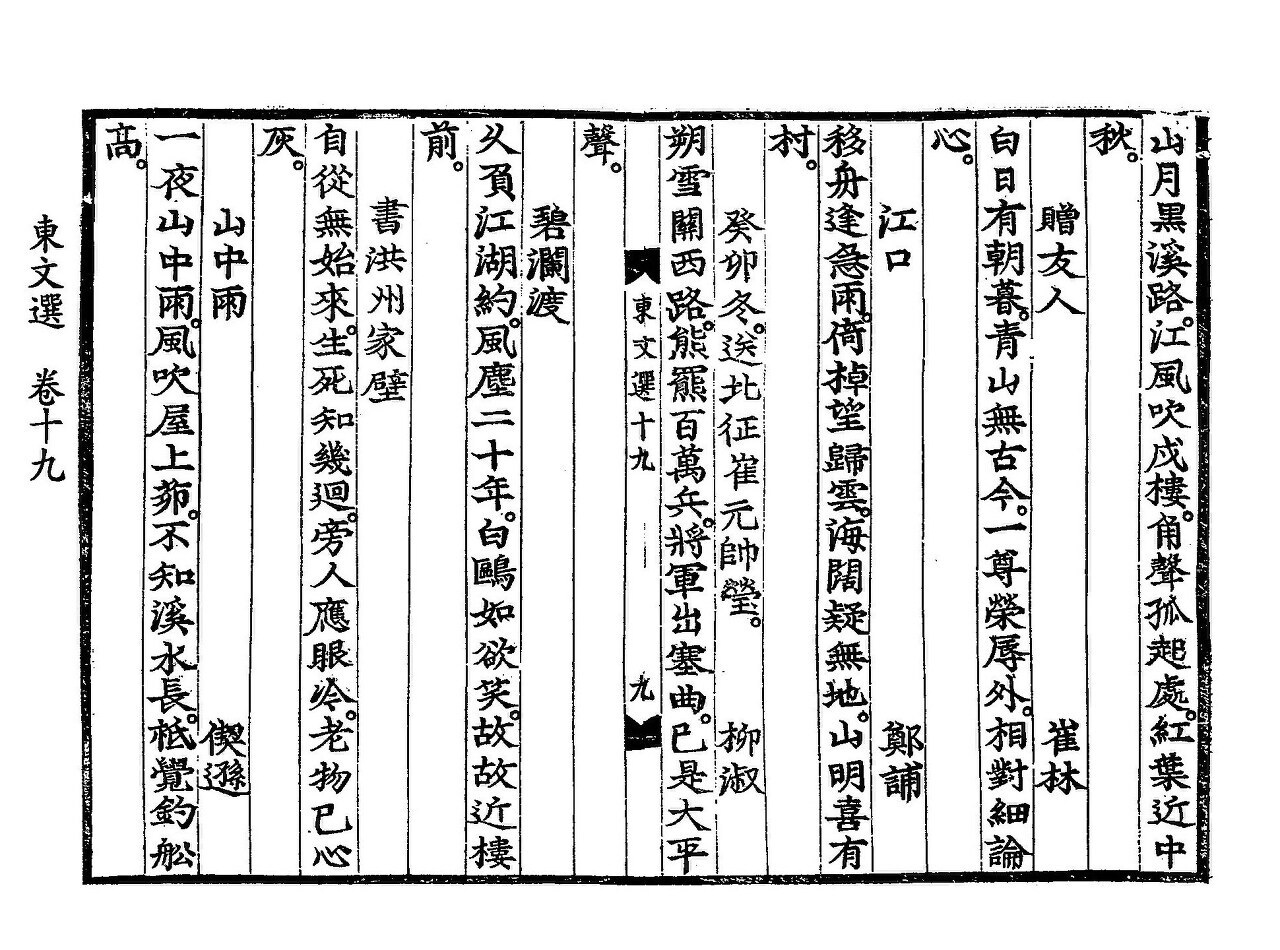 山月黑溪路。江風吹戍樓。角聲孤起處。紅葉近中
秋。
贈友人 崔林
白日有朝暮。青山無古今。一尊榮辱外。相對細論
心。
江口 鄭誧
移舟逢急雨。倚棹望歸雲。海闊疑無地。山明喜有
村。
癸卯冬。送北征崔元帥瑩。 柳淑
朔雪關西路。熊羆百萬兵。將軍出塞曲。已是大平
聲。
東文選十九 九
碧瀾渡
久負江湖約。風塵二十年。白鷗如欲笑。故故近樓
前。
書洪州家壁
自從無始來。生死知幾廻。旁人應眼冷。老物已心
灰。
山中雨 偰遜
一夜山中雨。風吹屋上茆。不知溪水長。秪覺釣舩
高。
東文選 卷十九